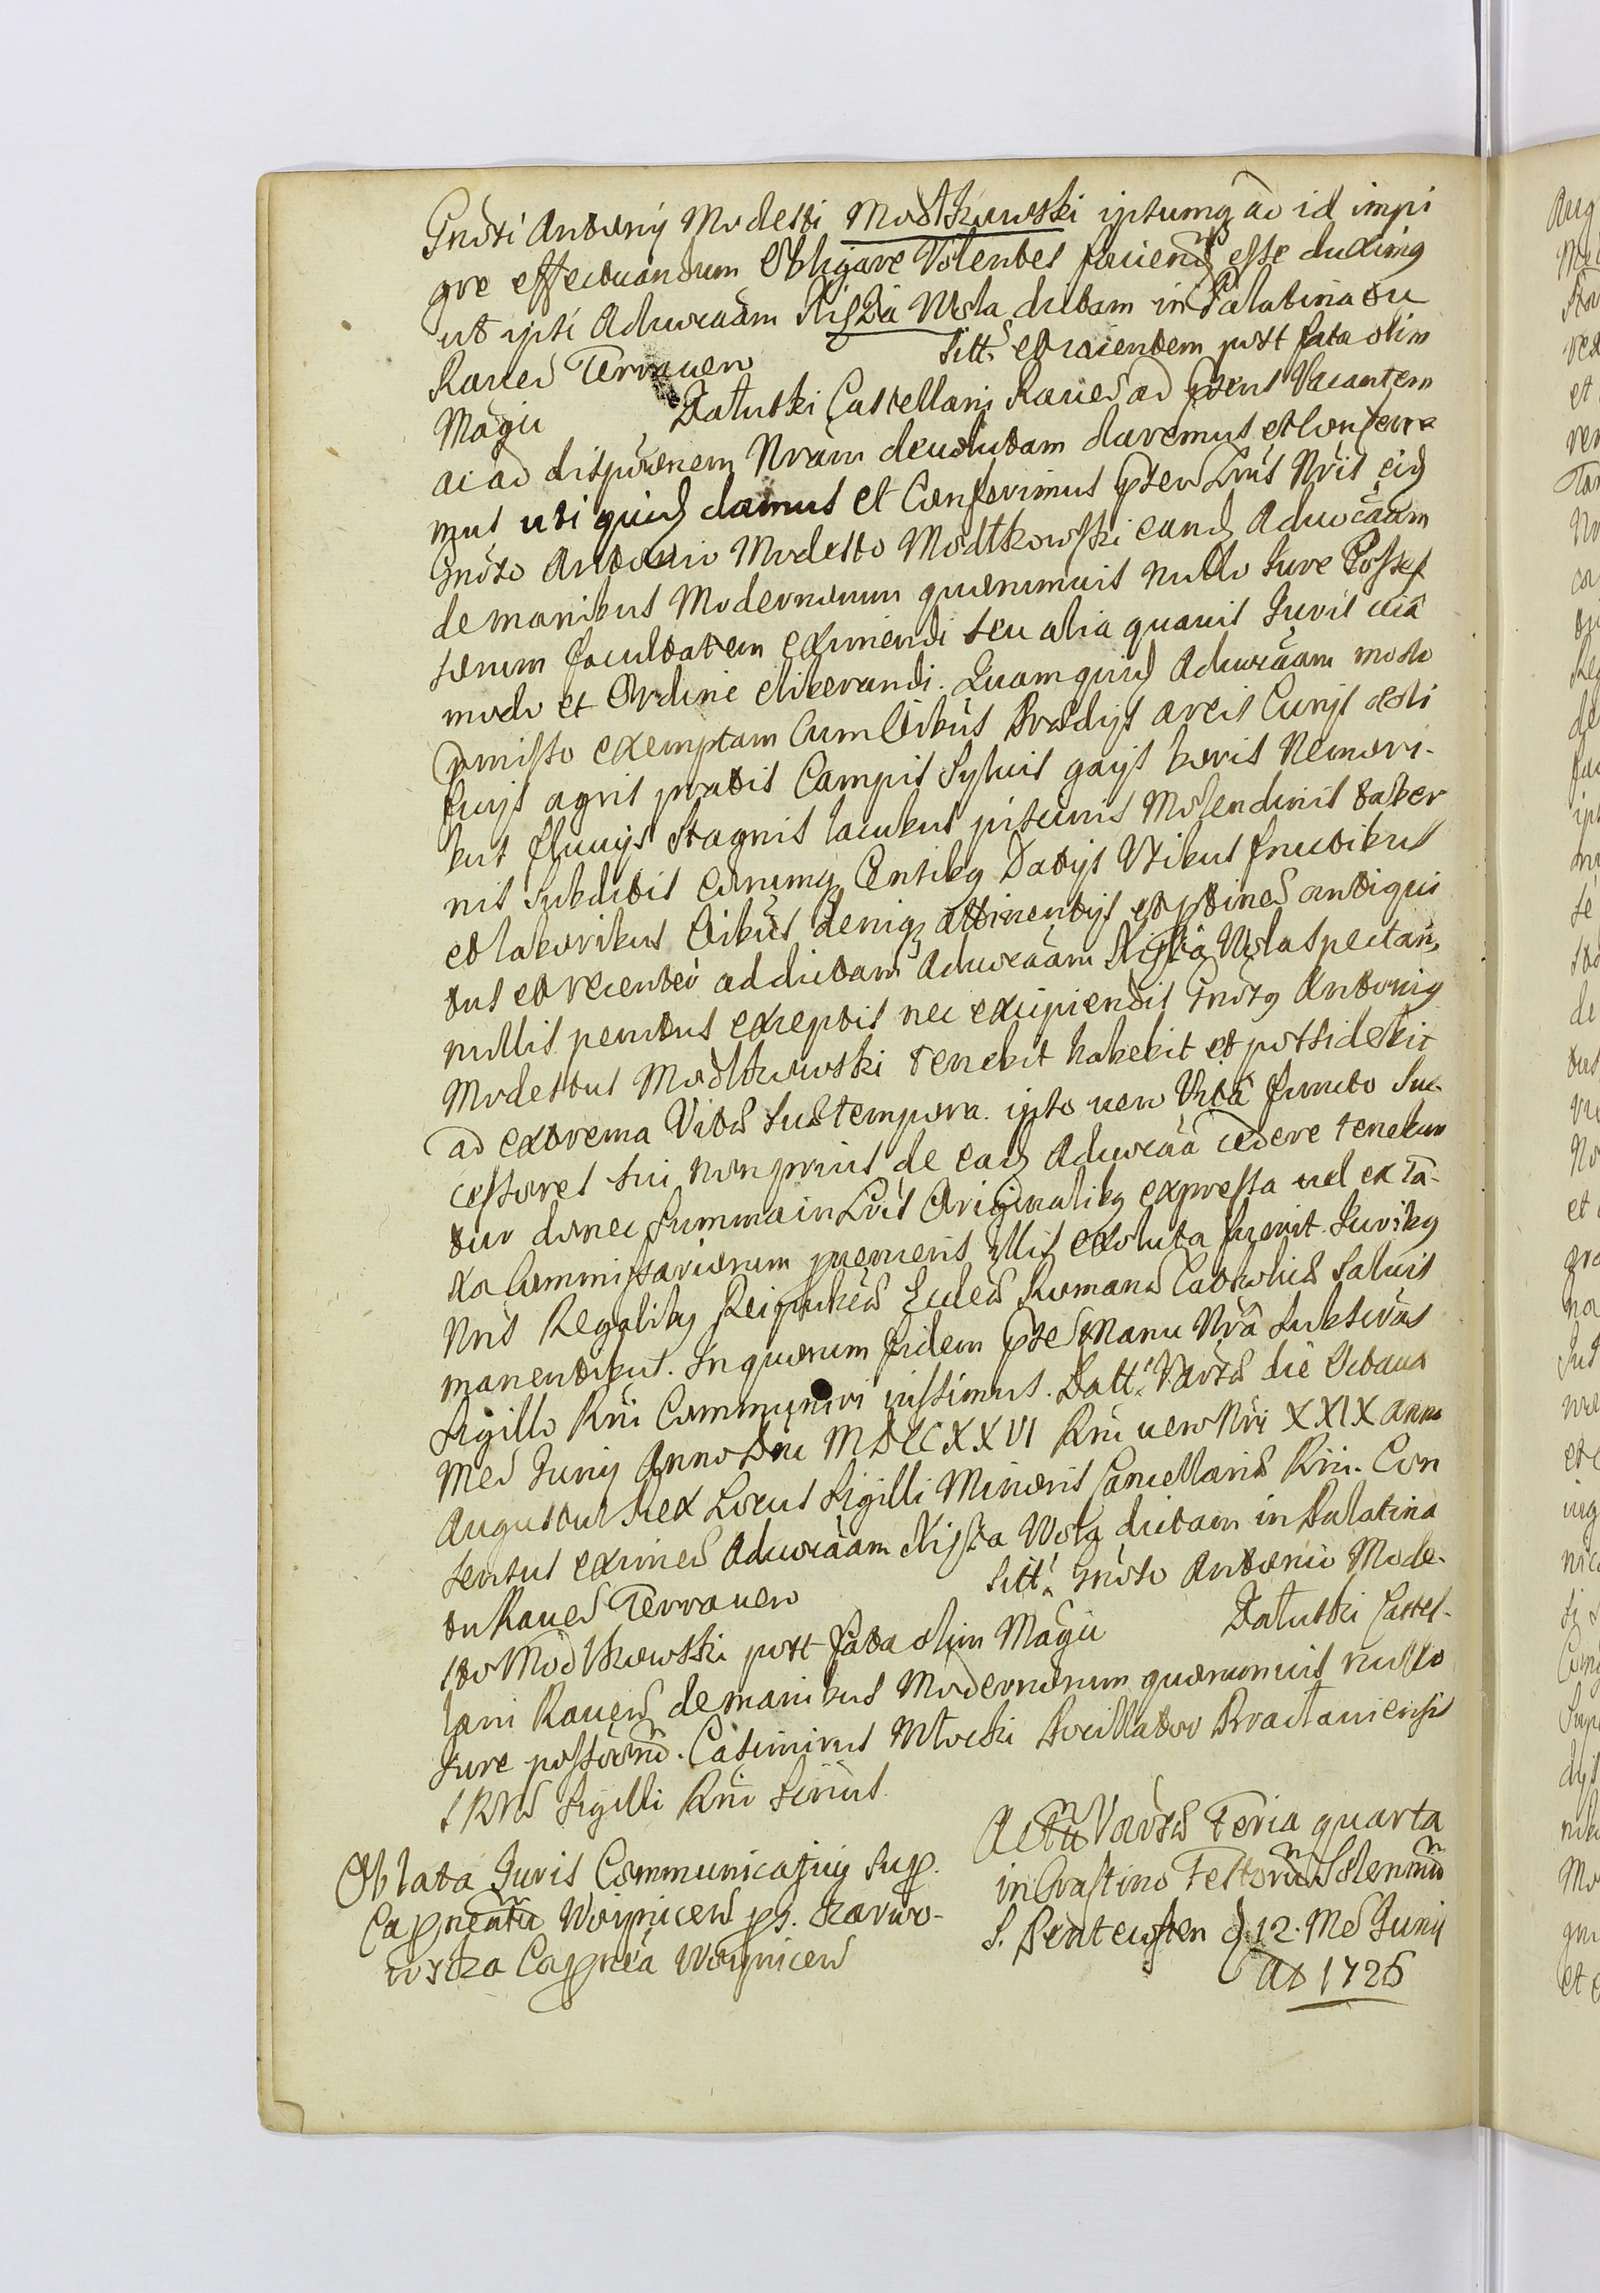 Gnosi Antonij Modesti Modlkowski ipsumq ad id impi
gre effectuandum Obligare Volentes faciend esse duximq
ut ipsi Aduocaam Kisza Wola dictam in Palatinatu
Rauen Terra uero Sitt. et iacentem post fata olim
Magci Załuski Castellani Rauen ad psens Vacantem
ac ad disponem Nram deuolutam daremus et conferre
mus uti quid damus et Conferimus pten Lris Nris eid
Gnoso Antonio Modesto Modlkowski eand Aduocaam
de manibus Modernorum quorumuis nullo Iure Posses
sorum facultatem eximendi seu alia quauis Iuris uia
modo et Ordine eliberandi. Quam quid Aduocaam modo
pmisso exemptam Cum Oibus Prædijs areis Curijs ædi
ficijs agris pratis Campis Syluis gaijs boris Nemori-
bus fluuijs Stagnis lacubus piscinis Molendinis taber
nis Subditis eorumq Censibq Datijs Utibus fructibus
et laboribus Oibus deniq attinentijs et ptinen antiqui
tus et recenter ad dictam Aduocaam Kisza Wola spectan,
nullis penitus exceptis nec excipiendis Gnosq Antoniq
Modestus Modlkowski tenebit habebit et possidebit
ad extrema Vitæ suæ tempora. ipso uero Vita functo Suc-
cessores sui non prius de ead Aduocaa cedere tenebun
tur donec Summa in Lris Originalibq expressa uel ex Ta-
xa Commissariorum proueneris illis exoluta fuerit. Iuribq
Nris Regalibq Reipubcæ Eccleæ Romanæ Catholicæ Saluis
manentibus. In quorum fidem pstes Manu Nra Subscras
Sigillo Rni Communiri iussimus. Datt. Varsæ die Octaua
Men Iunij Anno Dni MDCCXXVI Rni uero Nri XXIX anno
Augustus Rex Locus Sigilli Minoris Cancellariæ Rni. Con
sensus eximen Aduocaam Kisza Wola dictam in Palatina
tu Rauen Terra uero Sitt. Gnoso Antonio Mode-
sto Modlkowski post fata olim Magci Załuski Castel-
lani Rauen de manibus Modernorum quorumuis nullo
Iure possorum. Casimirus Mlocki Pocillator Braclauiensis
S R Mtis Sigilli Rni Srius.
Oblata Iuris Communicatiuij Sup.
Captneatu Woynicen ps. Karwo-
wska Captnea Woynicen
Actu Varsæ Feria quarta
in Crastino Festorum Solennium
S. Pentecosten d. 12. Men Iunij
Ao 1726